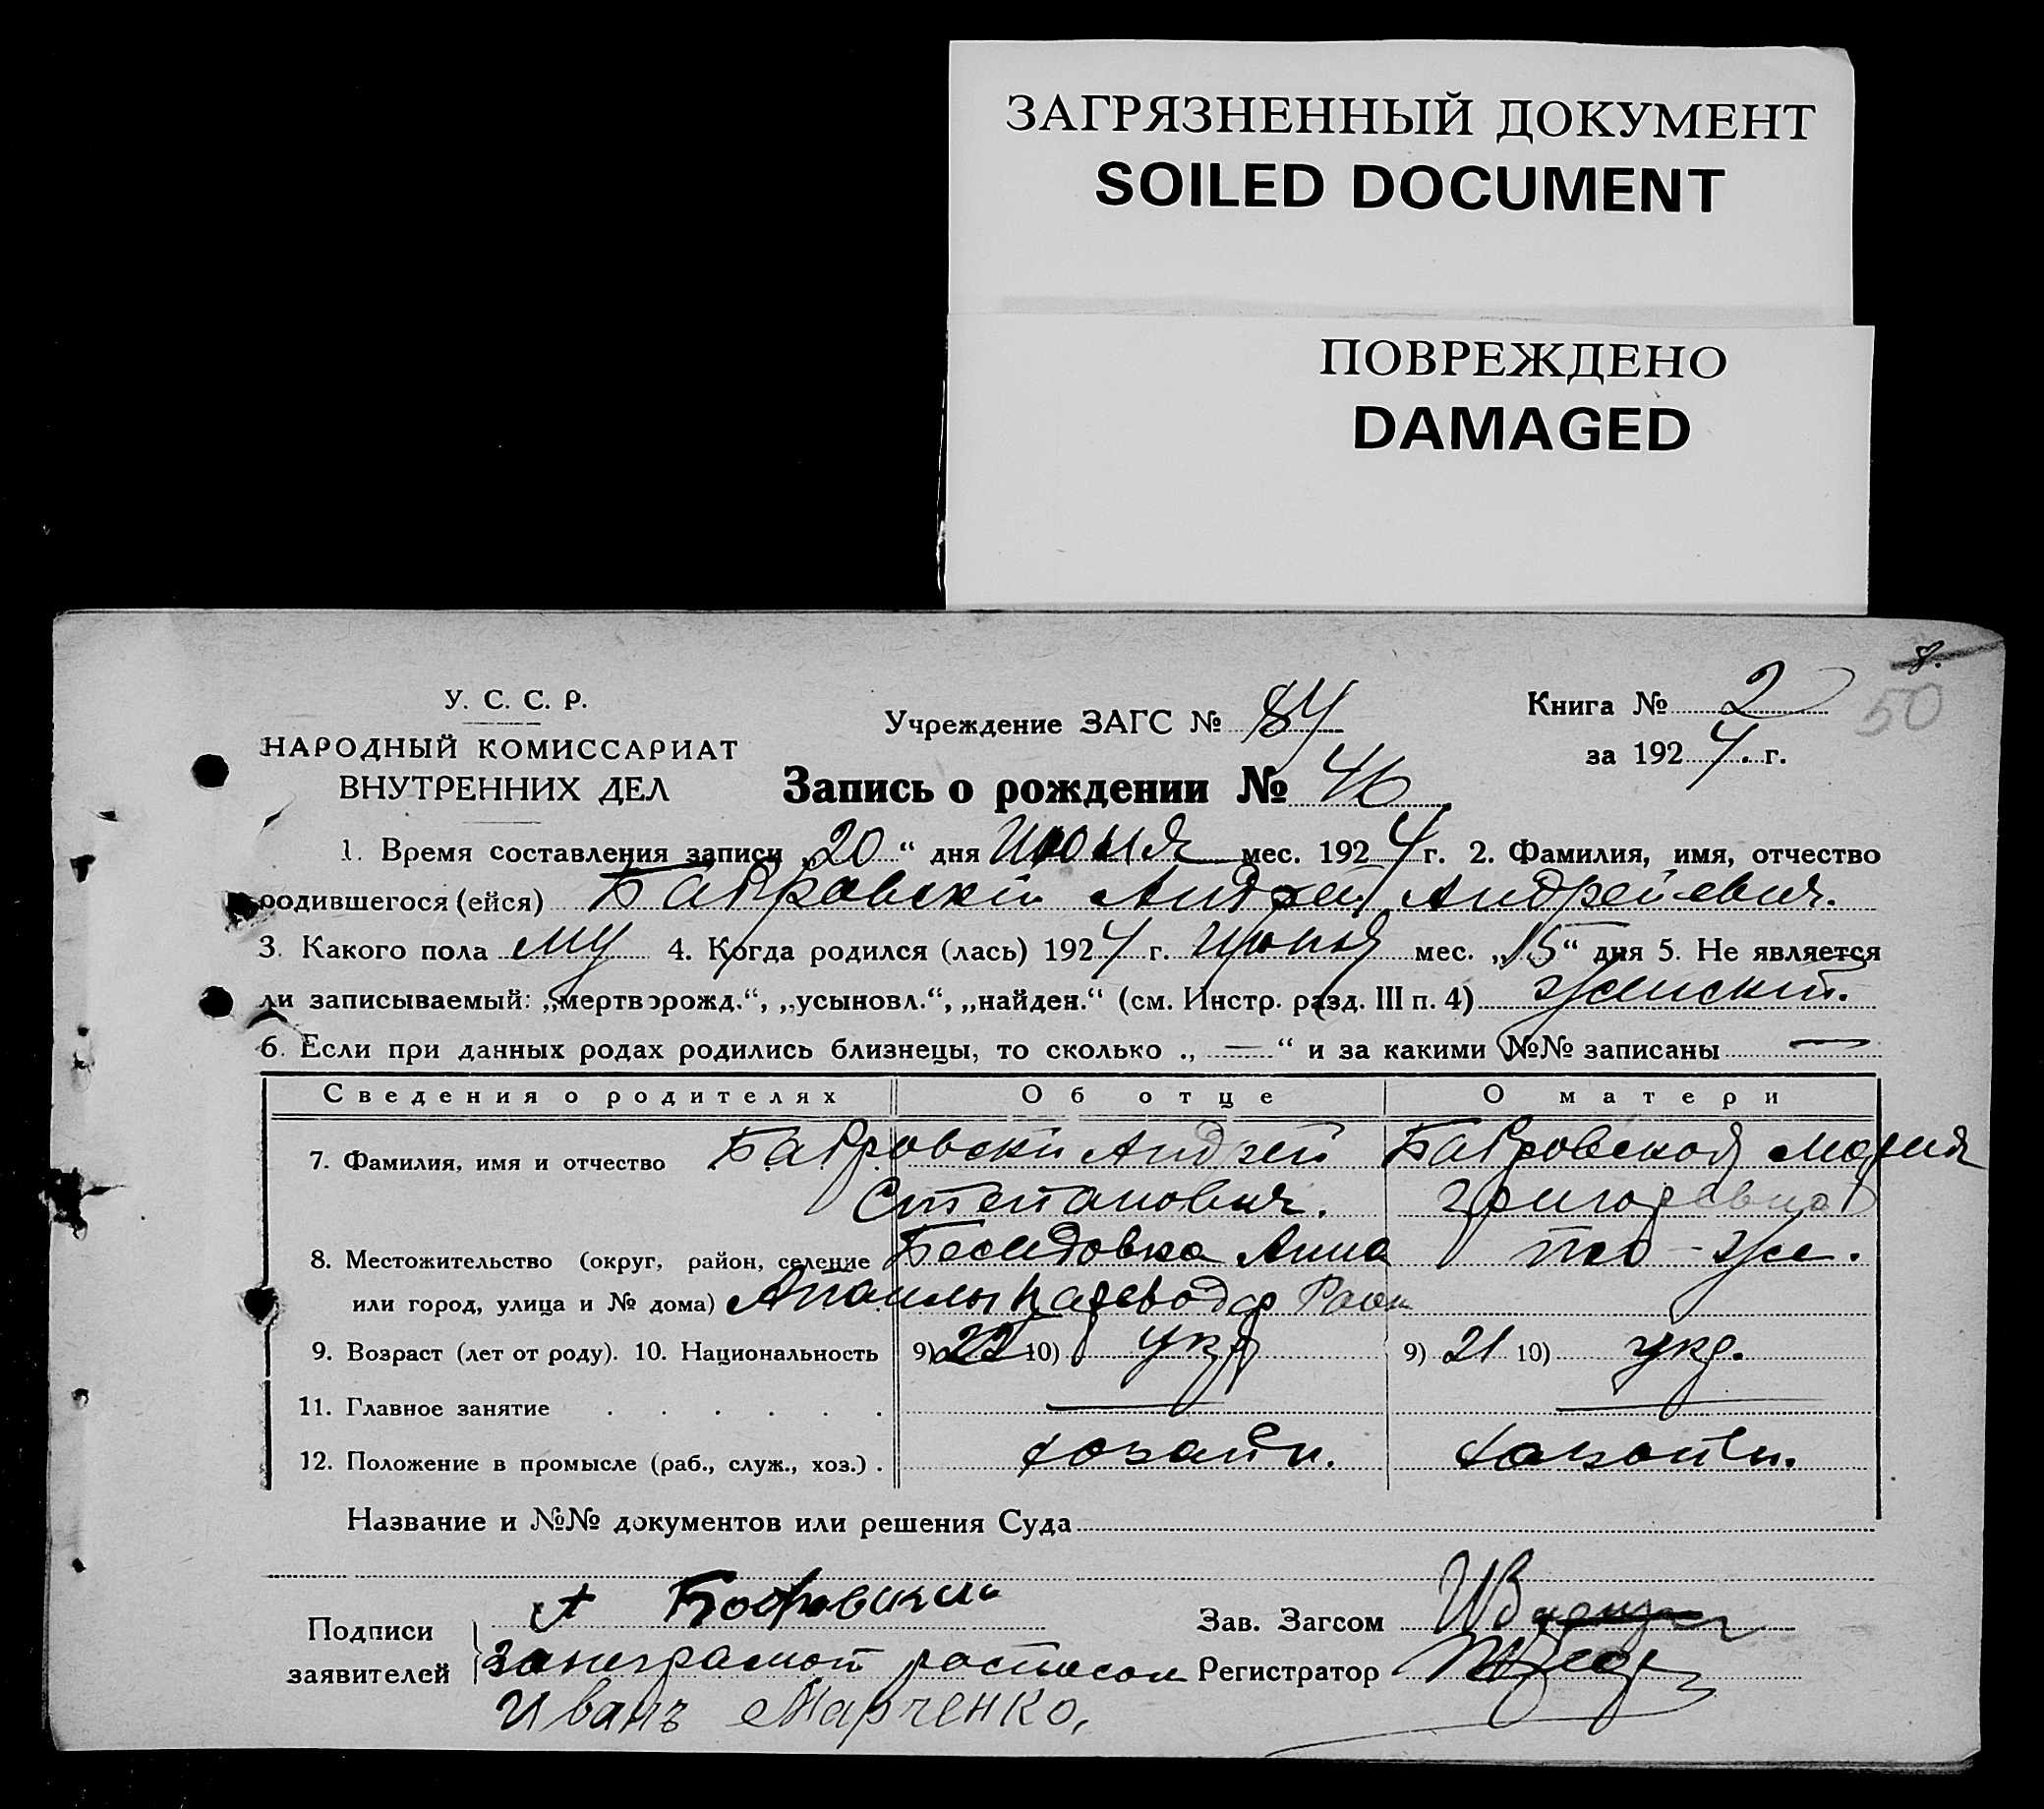 ЗАГРЯЗНЕННЫЙ ДОКУМЕНТ
SOILED DOCUMENT
ПОВРЕЖДЕНО
DAMAGED
8.
50
У. С. С. Р.
НАРОДНЫЙ КОМИССАРИАТ
ВНУТРЕННИХ ДЕЛ
Учреждение ЗАГС № 84
Книга № 2
за 1924 г.
Запись о рождении № 46
1. Время составления записи „20“ дня Июня мес. 1924 г. 2. Фамилия, имя, отчество
родившегося (ейся) Андрей Андреевич.
3. Какого пола му 4. Когда родился (лась) 1924 г. Июня мес. „15“ дня 5. Не является
ли записываемый: „мертворожд.“, „усыновл.“, „найден.“ (см. Инстр. разд. III п. 4)
6. Если при данных родах родились близнецы, то сколько „—“ и за какими №№ записаны —
Сведения о родителях Об отце О матери
7. Фамилия, имя и отчество Андрей Мария
Степанович. Григоревна
8. Местожительство (округ, район, селение
или город, улица и № дома)
9. Возраст (лет от роду). 10. Национальность 9) 22 10) укр 9) 21 10) укр.
11. Главное занятие . . . . . . — —
12. Положение в промысле (раб., служ., хоз.) . хозаин.
Название и №№ документов или решения Суда
Подписи
заявителей
Зав. Загсом
Регистратор
Иванъ Марченко,